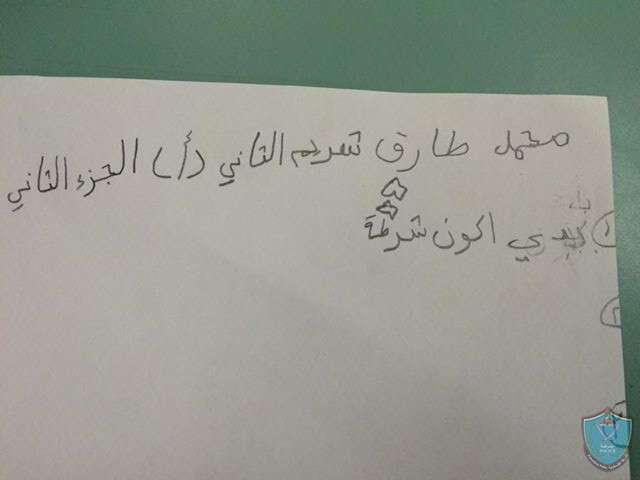 محمد طارق تسريم الثاني (أ) الجزء الثاني
① بدي اكون شرطة